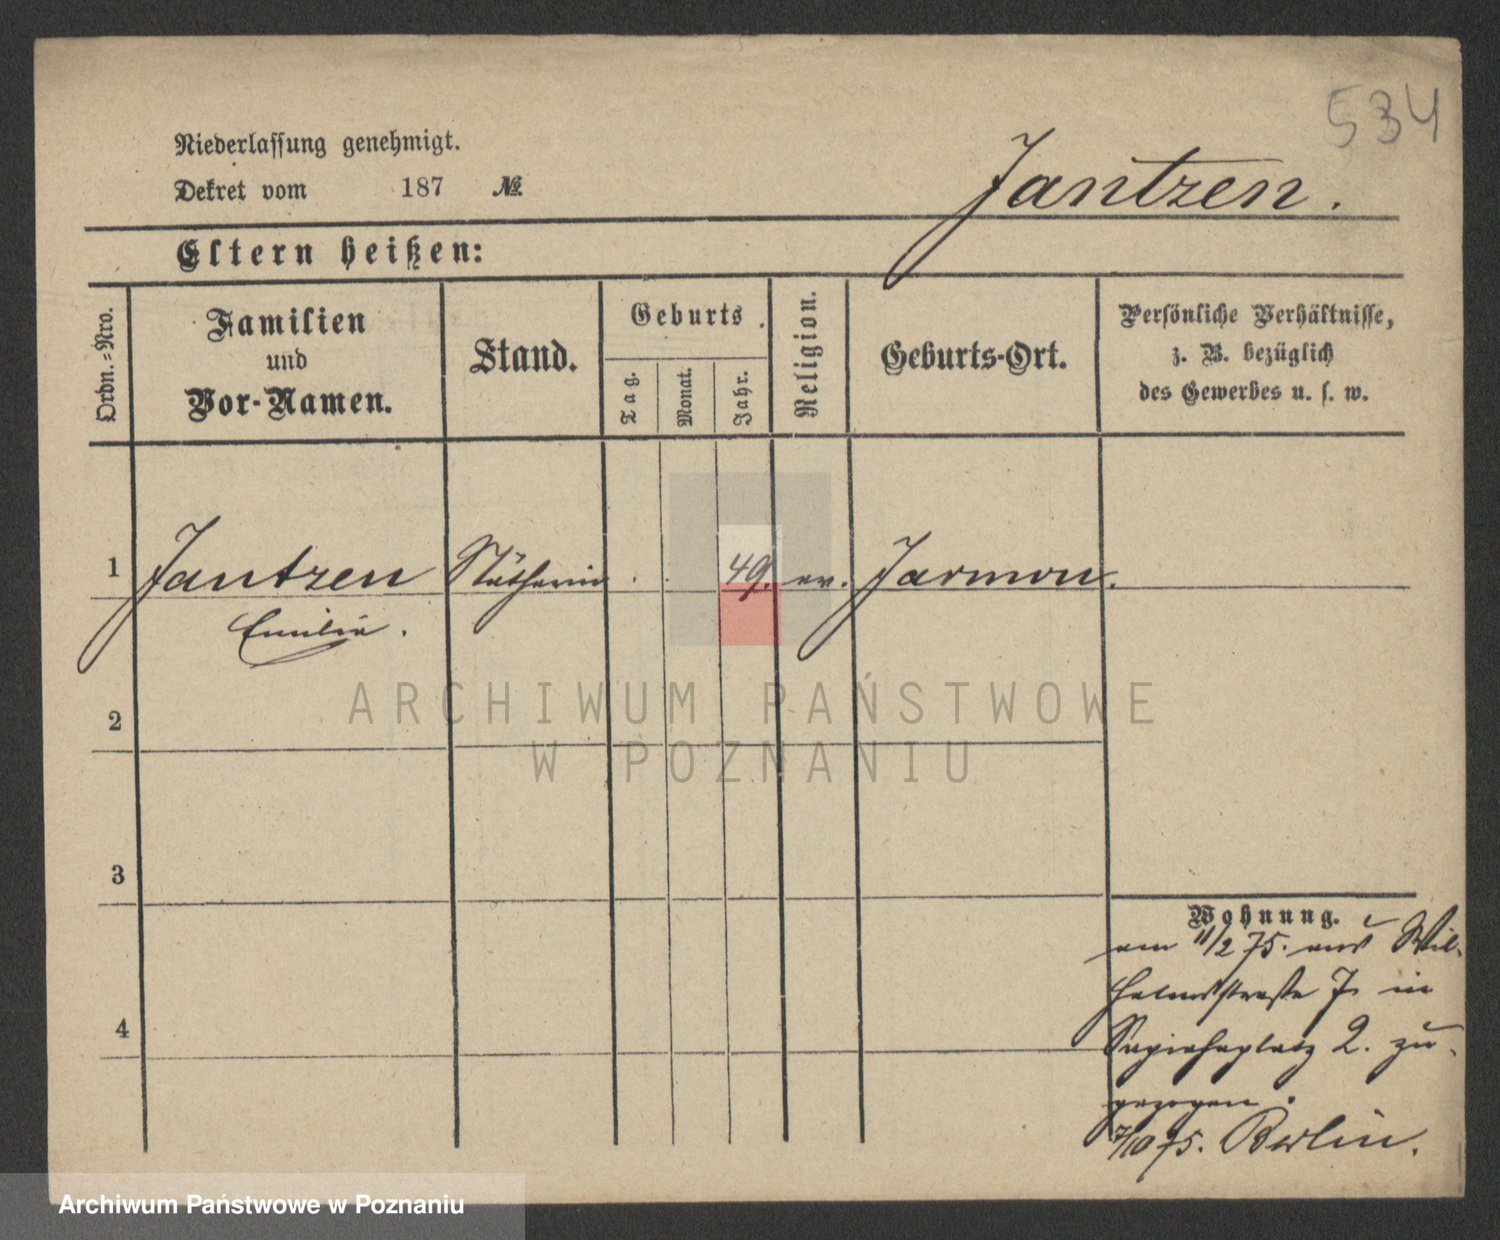 534
Niederlassung genehmigt.
Dekret vom 187 №
Jantzen.
Eltern heißen:
Ordn.=Nro.
Familien
und
Vor-Namen.
Stand.
Geburts
Tag.
Monat.
Jahr.
Religion.
Geburts-Ort.
Persönliche Verhältnisse,
z. B. bezüglich
des Gewerbes u. s. w.
1 Jantzen Nätherin . . 49. ev. Jarmen.
Emilie.
2
ARCHIWUM PAŃSTWOWE
W POZNANIU
3
Wohnung.
am 11/2 75. aus Wil-
helmsstraße 7 in
Sapiehaplatz 2. zu-
gezogen.
7/10 75. Berlin.
4
Archiwum Państwowe w Poznaniu